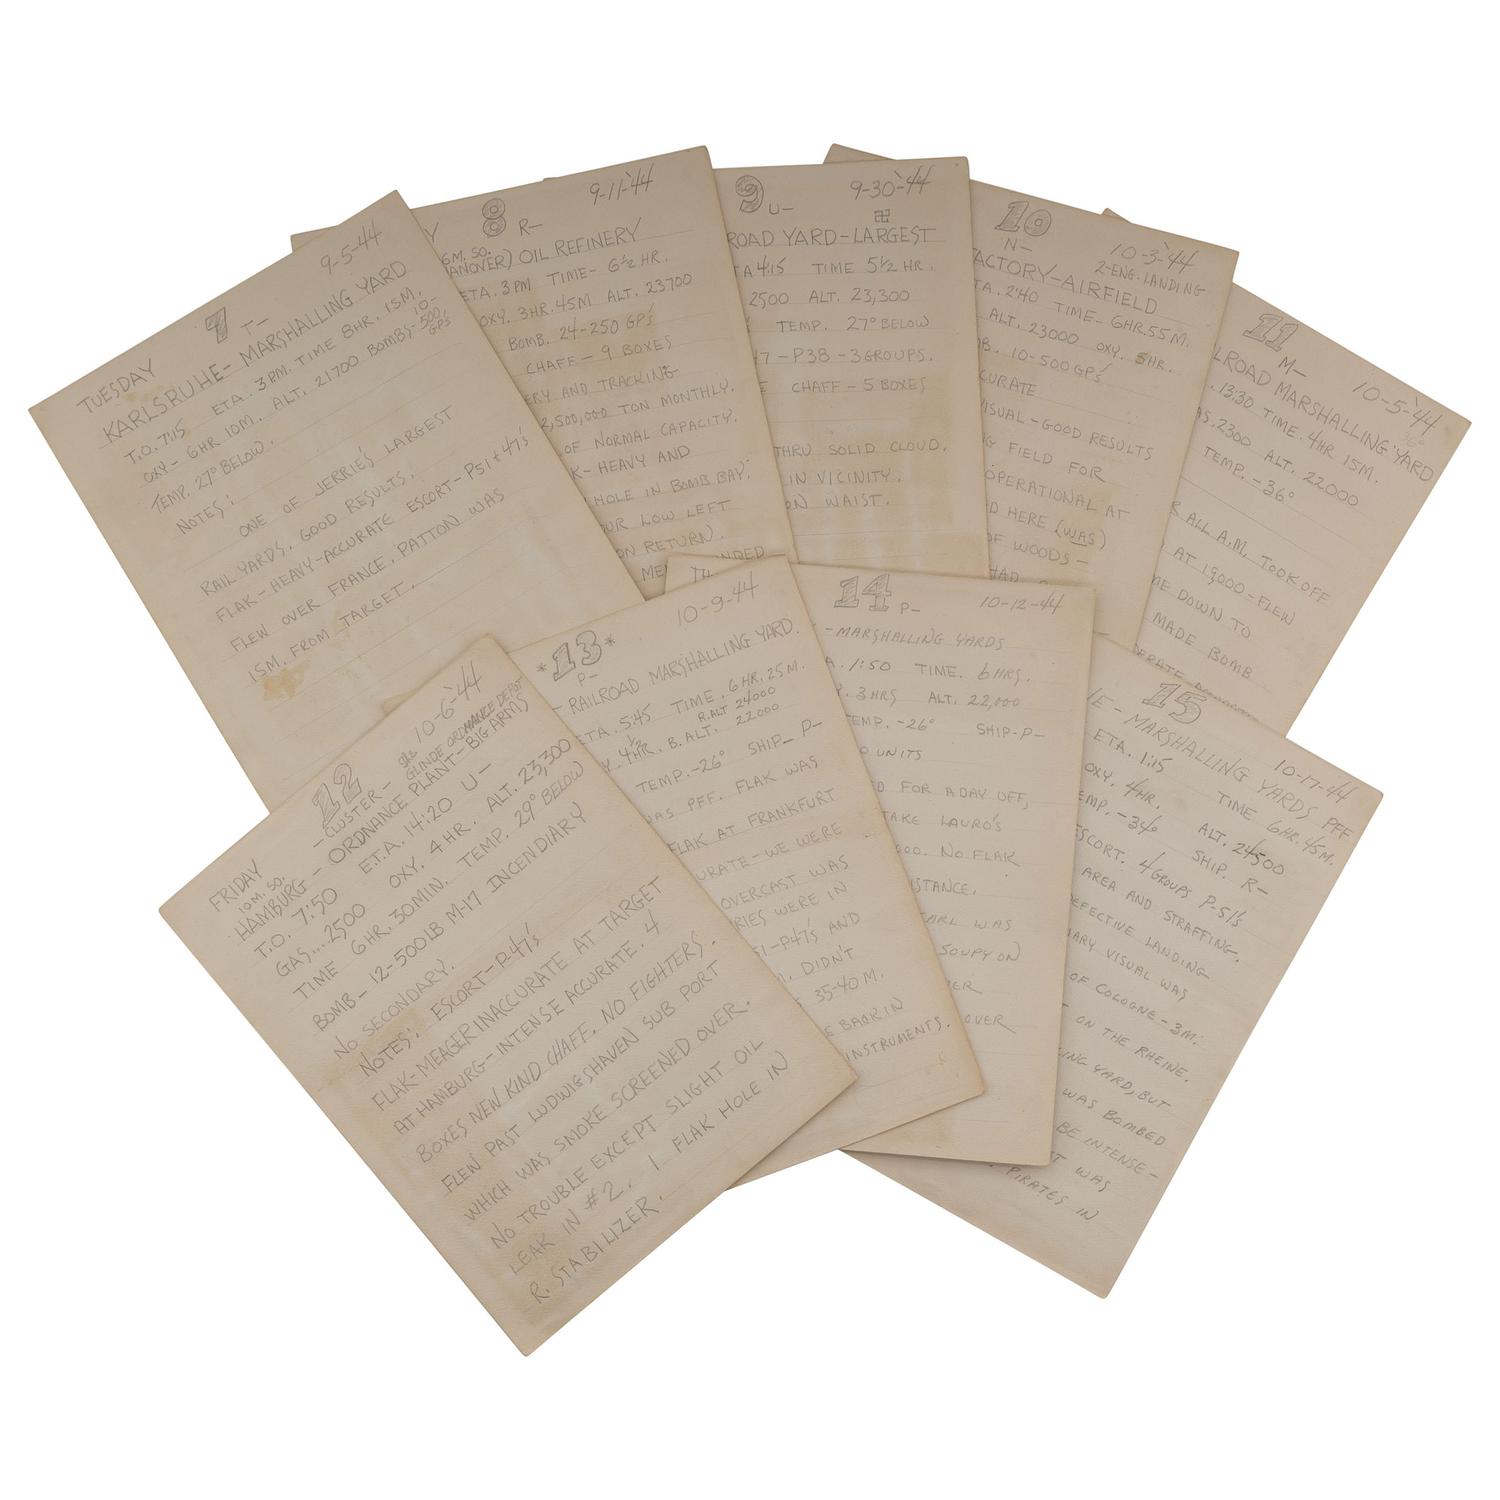 7 T- 9-5-'44
TUESDAY
KARLSRUHE- MARSHALLING YARD
T.O. 7:15 ETA. 3 PM. TIME 8HR. 15M.
OXY- 6HR 10M. ALT. 21700 BOMBS- 10-500 GP's
TEMP. 27° BELOW.
NOTES:
ONE OF JERRIE'S LARGEST
RAIL YARDS. GOOD RESULTS.
FLAK-HEAVY-ACCURATE ESCORT-P51+47's
FLEW OVER FRANCE. PATTON WAS
15M. FROM TARGET.
Y 8 R- 9-11-'44
6M. SO.
ANOVER) OIL REFINERY
ETA. 3 PM TIME- 6½ HR.
OXY. 3HR. 45M ALT. 23700
BOMB. 24-250 GP's
CHAFF- 9 BOXES
ERY AND TRACKING
2,500,000 TON MONTHLY.
OF NORMAL CAPACITY.
K- HEAVY AND
HOLE IN BOMB BAY.
UR LOW LEFT
ON RETURN.
ME
NDED
9 U- 9-30-'44
卍
ROAD YARD-LARGEST
TA 4:15 TIME 5½ HR.
2500 ALT. 23,300
TEMP. 27° BELOW
47 -P38 -3 GROUPS.
E CHAFF- 5 BOXES
THRU SOLID CLOUD.
IN VICINITY.
ON WAIST.
10 N- 10-3-'44
2-ENG. LANDING
FACTORY-AIRFIELD
TA. 2:40 TIME- 6HR. 55 M.
ALT. 23000 OXY. 5HR.
B. 10-500 GP's
CURATE
VISUAL-GOOD RESULTS
G FIELD FOR
OPERATIONAL AT
D HERE (WAS)
OF WOODS-
HAD
11 M- 10-5-'44
LROAD MARSHALLING YARD
. 13:30 TIME. 4HR 15M.
AS. 2300 ALT. 22000
TEMP. -36°
R ALL A.M. TOOK OFF
AT 19,000-FLEW
ME DOWN TO
MADE BOMB
ERATE
12 10-6-'44
-CLUSTER- GLINDE ORDNANCE DEPOT
FRIDAY
10M. SO.
HAMBURG - ORDNANCE PLANT-BIG ARMS
T.O. 7:50 E.T.A. 14:20 U-
GAS...2500 OXY. 4 HR. ALT. 23,300
TIME 6 HR. 30MIN. TEMP. 29° BELOW
BOMB- 12-500LB M-17 INCENDIARY
NO SECONDARY.
NOTES: ESCORT-P-47's
FLAK-MEAGER INACCURATE AT TARGET
AT HAMBURG-INTENSE ACCURATE. 4
BOXES NEW KIND CHAFF. NO FIGHTERS.
FLEW PAST LUDWIGSHAVEN SUB PORT
WHICH WAS SMOKE SCREENED OVER.
NO TROUBLE EXCEPT SLIGHT OIL
LEAK IN #2. 1 FLAK HOLE IN
R. STABILIZER.
*13* 10-9-44
P-
- RAILROAD MARSHALLING YARD.
ETA. 5:45 TIME. 6 HR. 25 M.
R.ALT 24000
Y. 4½HR. B. ALT. 22000
TEMP.-26° SHIP- P-
AS PFF. FLAK WAS
FLAK AT FRANKFURT
URATE-WE WERE
OVERCAST WAS
RIES WERE IN
51-P47's AND
. DIDN'T
35-40 M.
E BACK IN
INSTRUMENTS.
14 P- 10-12-44
-MARSHALLING YARDS
A. 1:50 TIME. 6 HRS.
Y. 3HRS ALT. 22,000
TEMP. -26° SHIP-P-
O UNITS
D FOR A DAY OFF,
TAKE LAURO'S
000. NO FLAK
ISTANCE.
ARL WAS
SOUPY ON
ER
OVER
15 10-17-44
E - MARSHALLING YARDS PFF
ETA. 1:15 TIME 6HR. 45M.
OXY. 4HR. ALT. 24500
EMP. -34° SHIP. R-
ESCORT. 4 GROUPS P-51's
AREA AND STRAFFING.
DEFECTIVE LANDING
ARY VISUAL WAS
OF COLOGNE-3M.
ON THE RHEINE.
ING YARD, BUT
WAS BOMBED
BE INTENSE-
T WAS
PIRATES IN